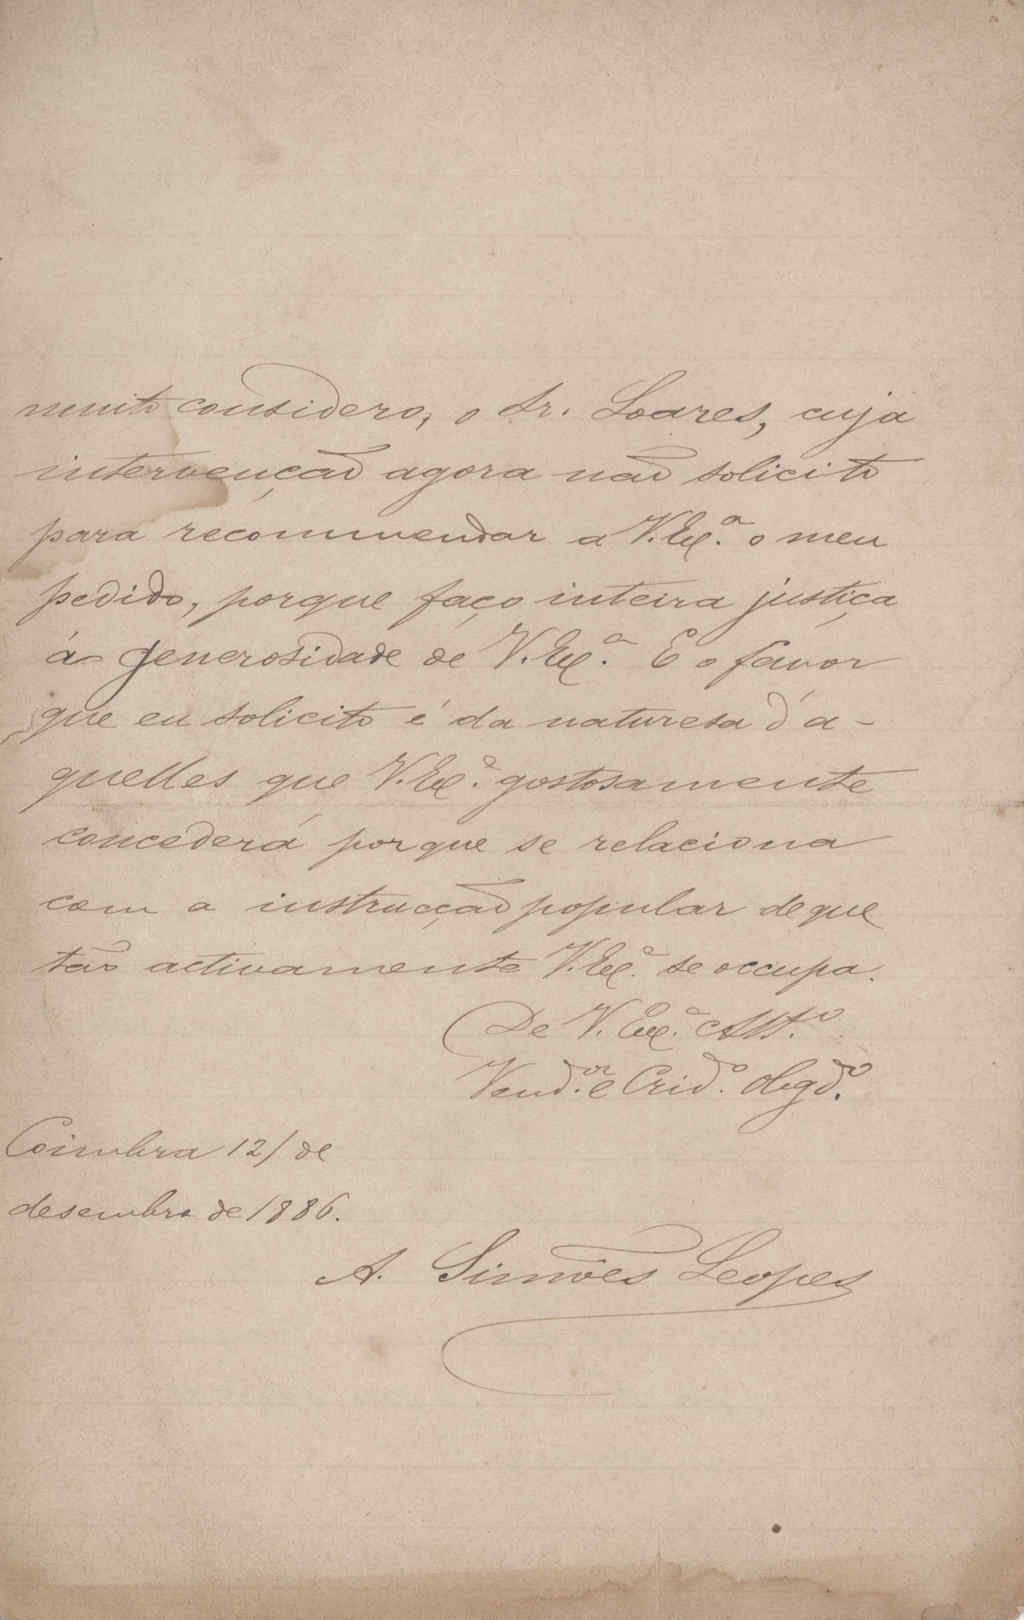 muito considero, o Sr. Soares, cuja
intervenção agora não solicito
para recommendar a V. Ex.ª o meu
pedido, porque faço inteira justiça
á generosidade de V. Ex.ª E o favor
que eu solicito é da naturesa d'a-
quelles que V. Ex.ª gostosamente
concederá porque se relaciona
com a instrucção popular de que
tão activamente V. Ex.ª se occupa.
De V. Ex.ª Att.º
Vend.or e Crid.º obgd.º
Coimbra 12/ de
desembro de 1886.
A. Simões Lopes